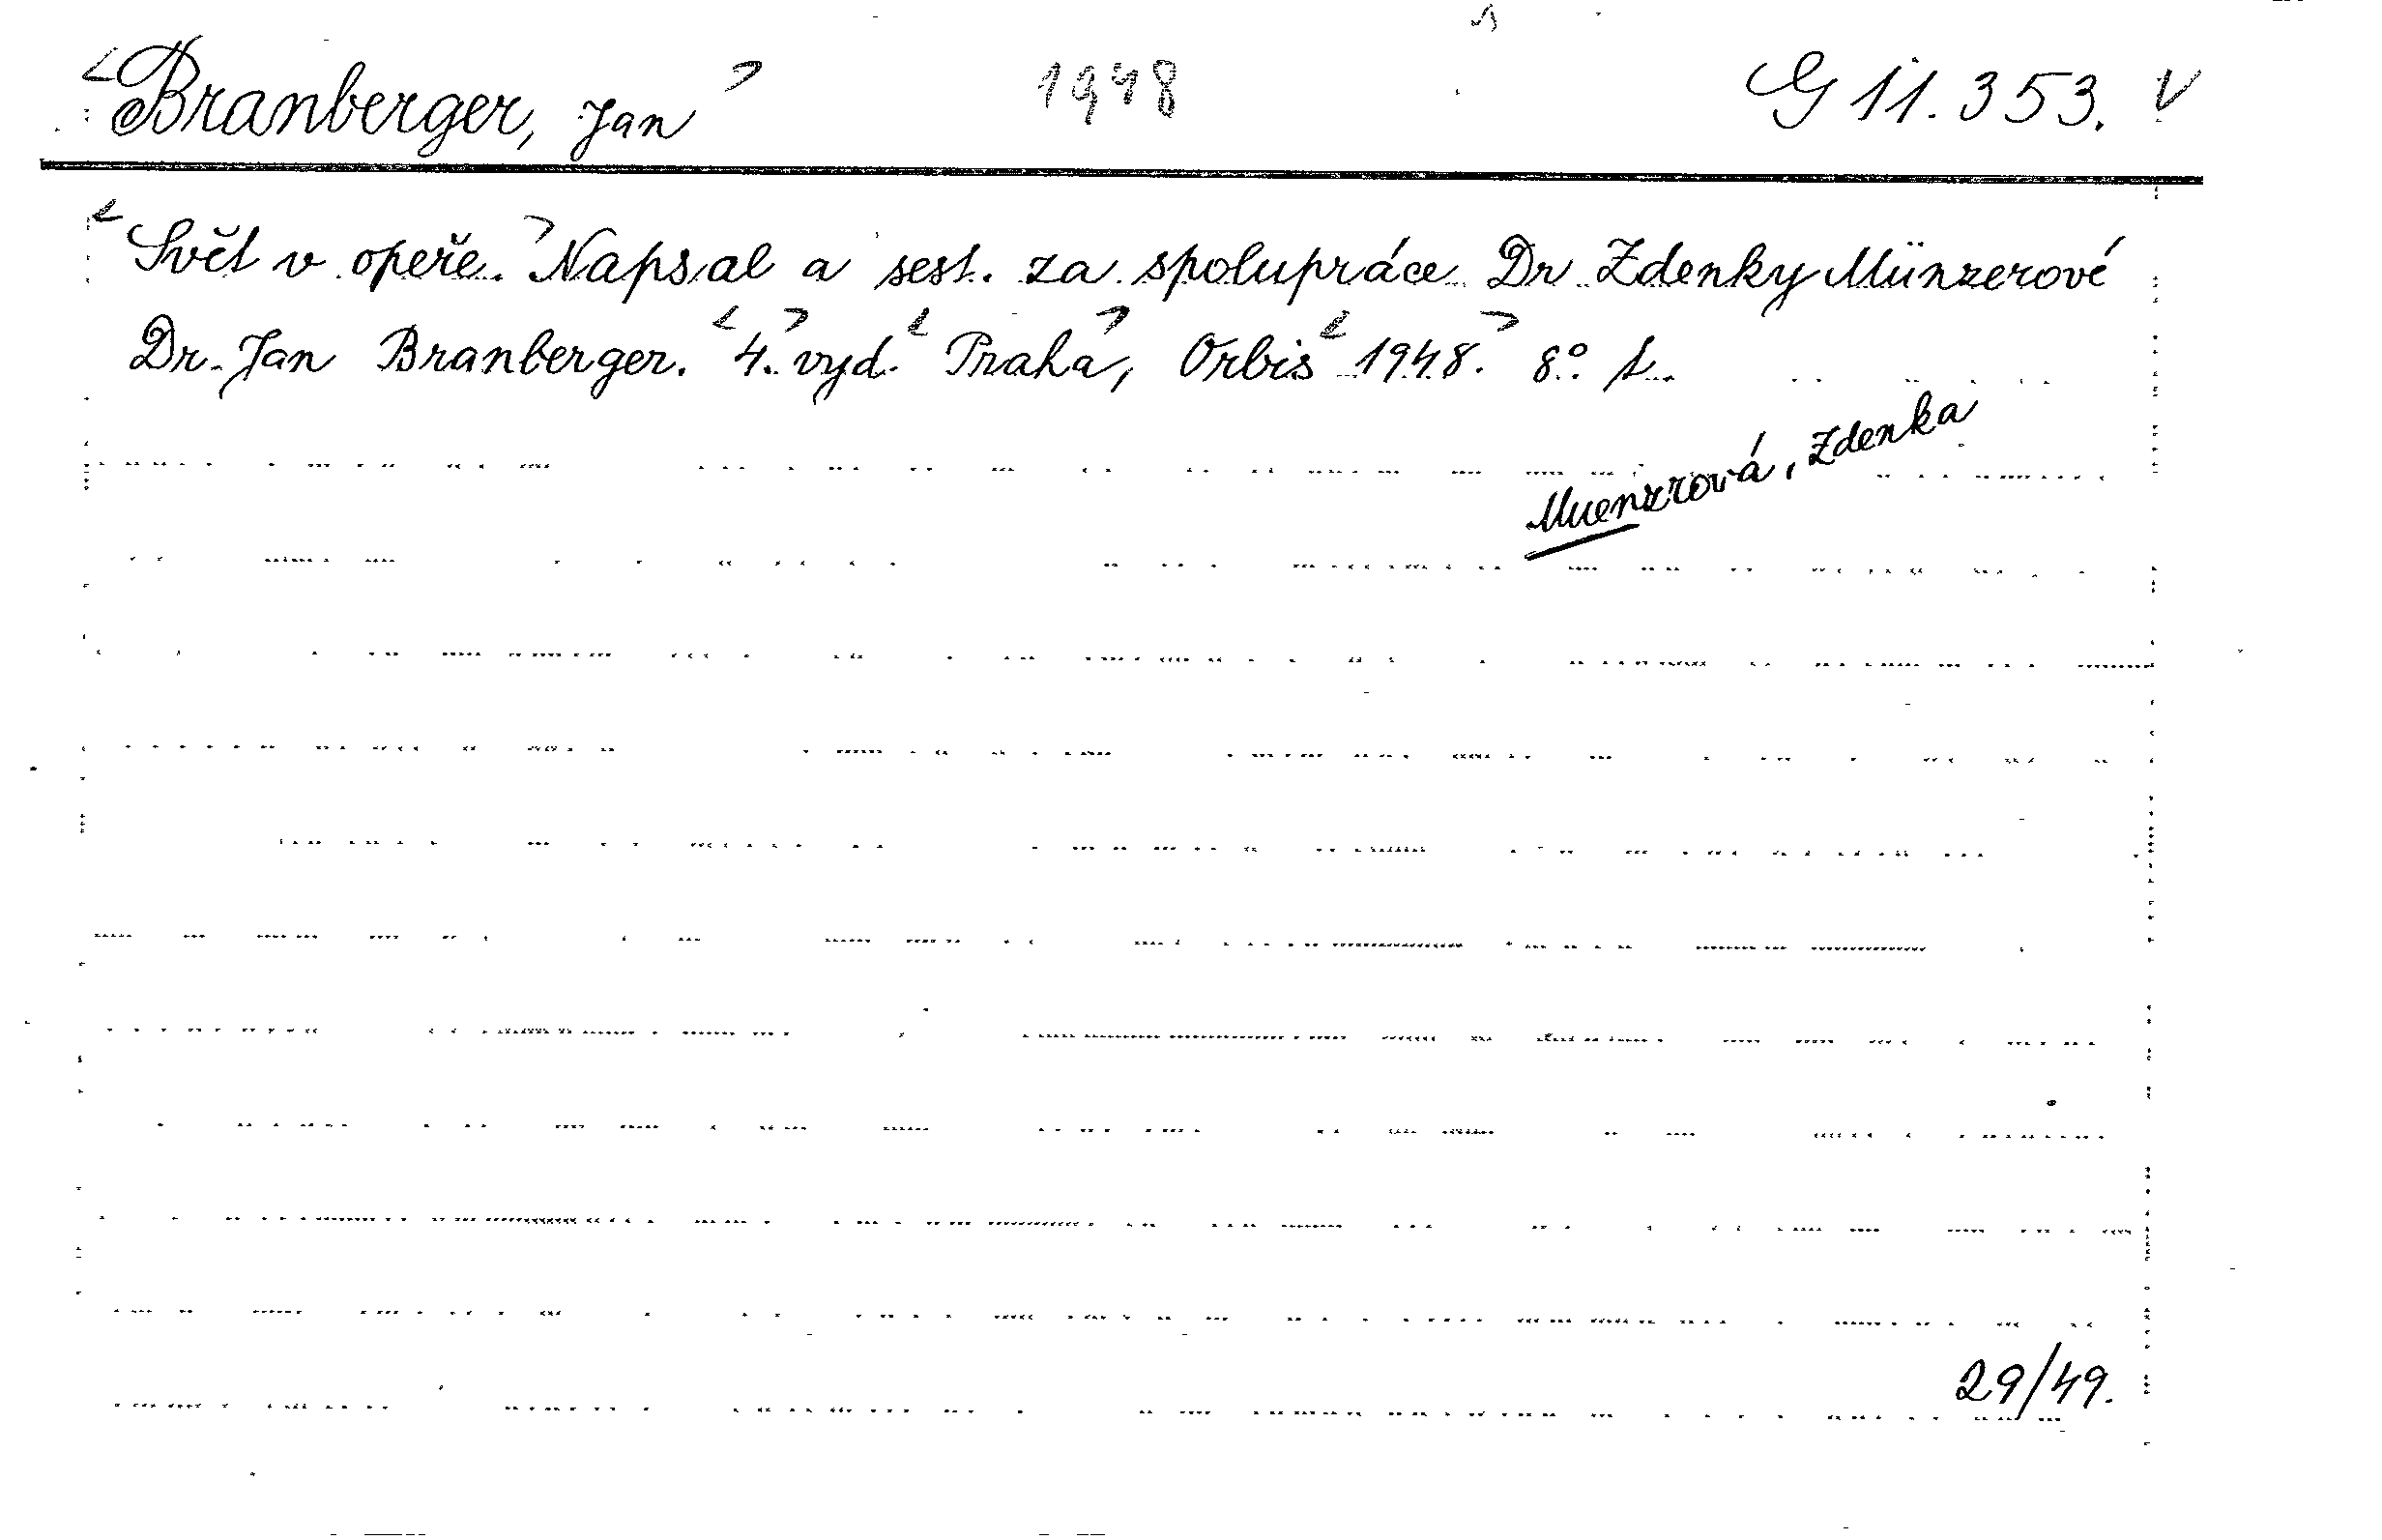 Branberger, Jan 1948 G 11.353.
Svět v opeře. Napsal a sest. za spolupráce Dr Zdenky Münzerové
Dr. Jan Branberger. 4. vyd. Praha, Orbis 1948. 8°.
Muenzrová, Zdenka
29/49.